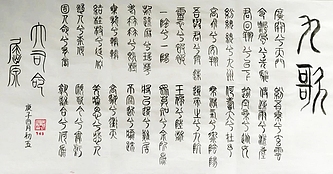 九歌
廣開兮天門 紛吾乘兮玄雲
令飄風兮先驅 使涷雨兮灑塵
君回翔兮以下 踰空桑兮從女
紛總總兮九州 何壽夭兮在予
高飛兮安翔 乘清氣兮御陰陽
吾與君兮齋速 導帝之兮九坑
靈衣兮被被 玉佩兮陸離
一陰兮一陽 眾莫知兮余所為
折疏麻兮瑤華 將以遺兮離居
老冉冉兮既極 不寖近兮愈疏
乘龍兮轔轔 高駝兮沖天
結桂枝兮延佇 羌愈思兮愁人
愁人兮奈何 願若今兮無虧
固人命兮有當 孰離合兮可為
大司命
屈原
庚子四月初五